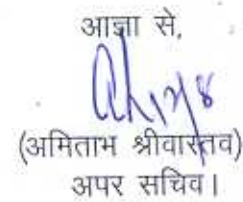 आज्ञा से,
(अमिताभ श्रीवास्तव)
अपर सचिव।